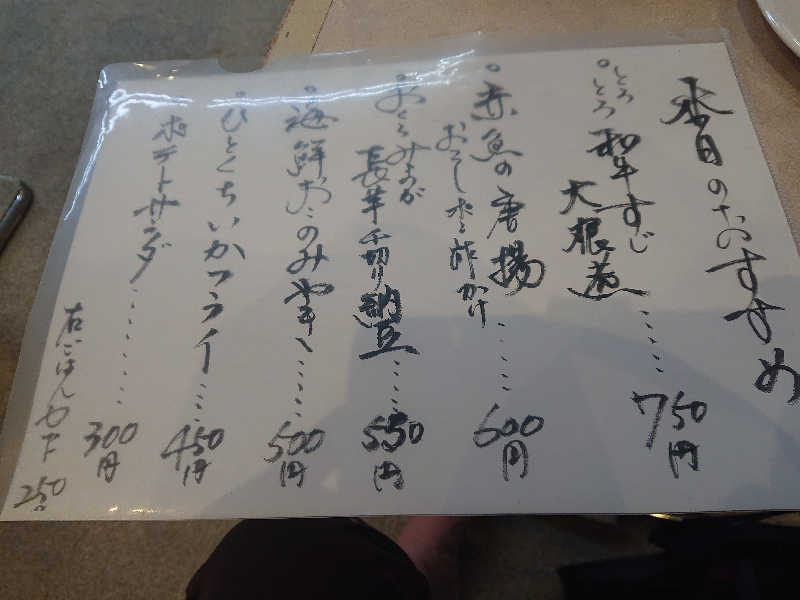 本日のおすすめ
とろとろ和牛すじ
大根煮 ..... 750円
赤魚の唐揚
おろしポン酢かけ ..... 600円
おくらみょうが
長芋千切り納豆 .... 550円
海鮮おこのみやき ..... 500円
ひとくちいかフライ ... 450円
ポテトサラダ ....... 300円
ごはんセット 250